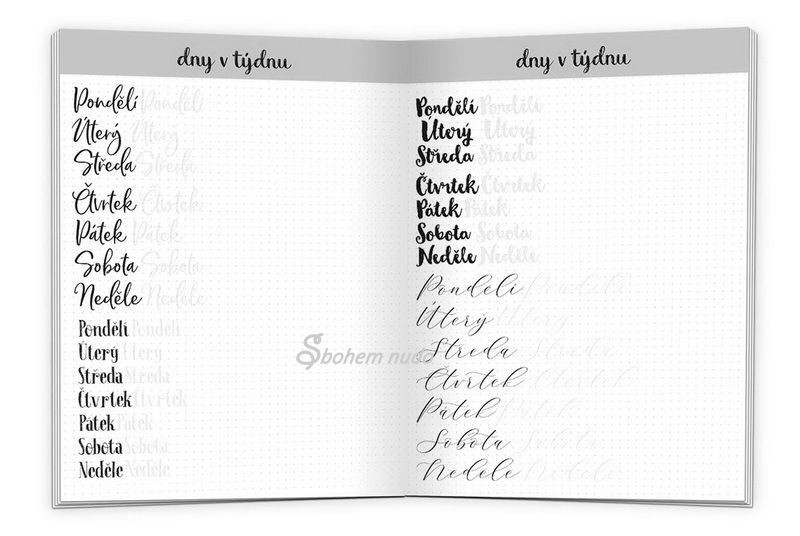 dny v týdnu
Pondělí Pondělí
Úterý Úterý
Středa Středa
Čtvrtek Čtvrtek
Pátek Pátek
Sobota Sobota
Neděle Neděle
Pondělí Pondělí
Úterý Úterý
Středa Středa
Čtvrtek Čtvrtek
Pátek Pátek
Sobota Sobota
Neděle Neděle
dny v týdnu
Pondělí Pondělí
Úterý Úterý
Středa Středa
Čtvrtek Čtvrtek
Pátek Pátek
Sobota Sobota
Neděle Neděle
Pondělí Pondělí
Úterý Úterý
Středa Středa
Čtvrtek Čtvrtek
Pátek Pátek
Sobota Sobota
Neděle Neděle
Sbohem nudo